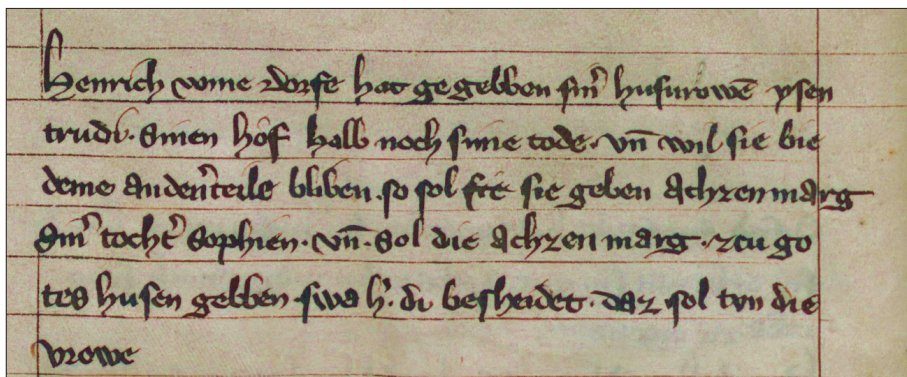 Henrich vome dorfe hat gegebben sinˀ husurowē ysen
trudi · Sinen hof halb noch sime tode · vn̄ wil sie bie
deme andenˀteile bliben · so sol sie geben achzen marg
Sinˀ tochtˀ Sophien · vn̄ · Sol die achzen marg · zcu go
tes husen gebben · swa hˀ · di besheidet · daz sol tvn die
vrowe